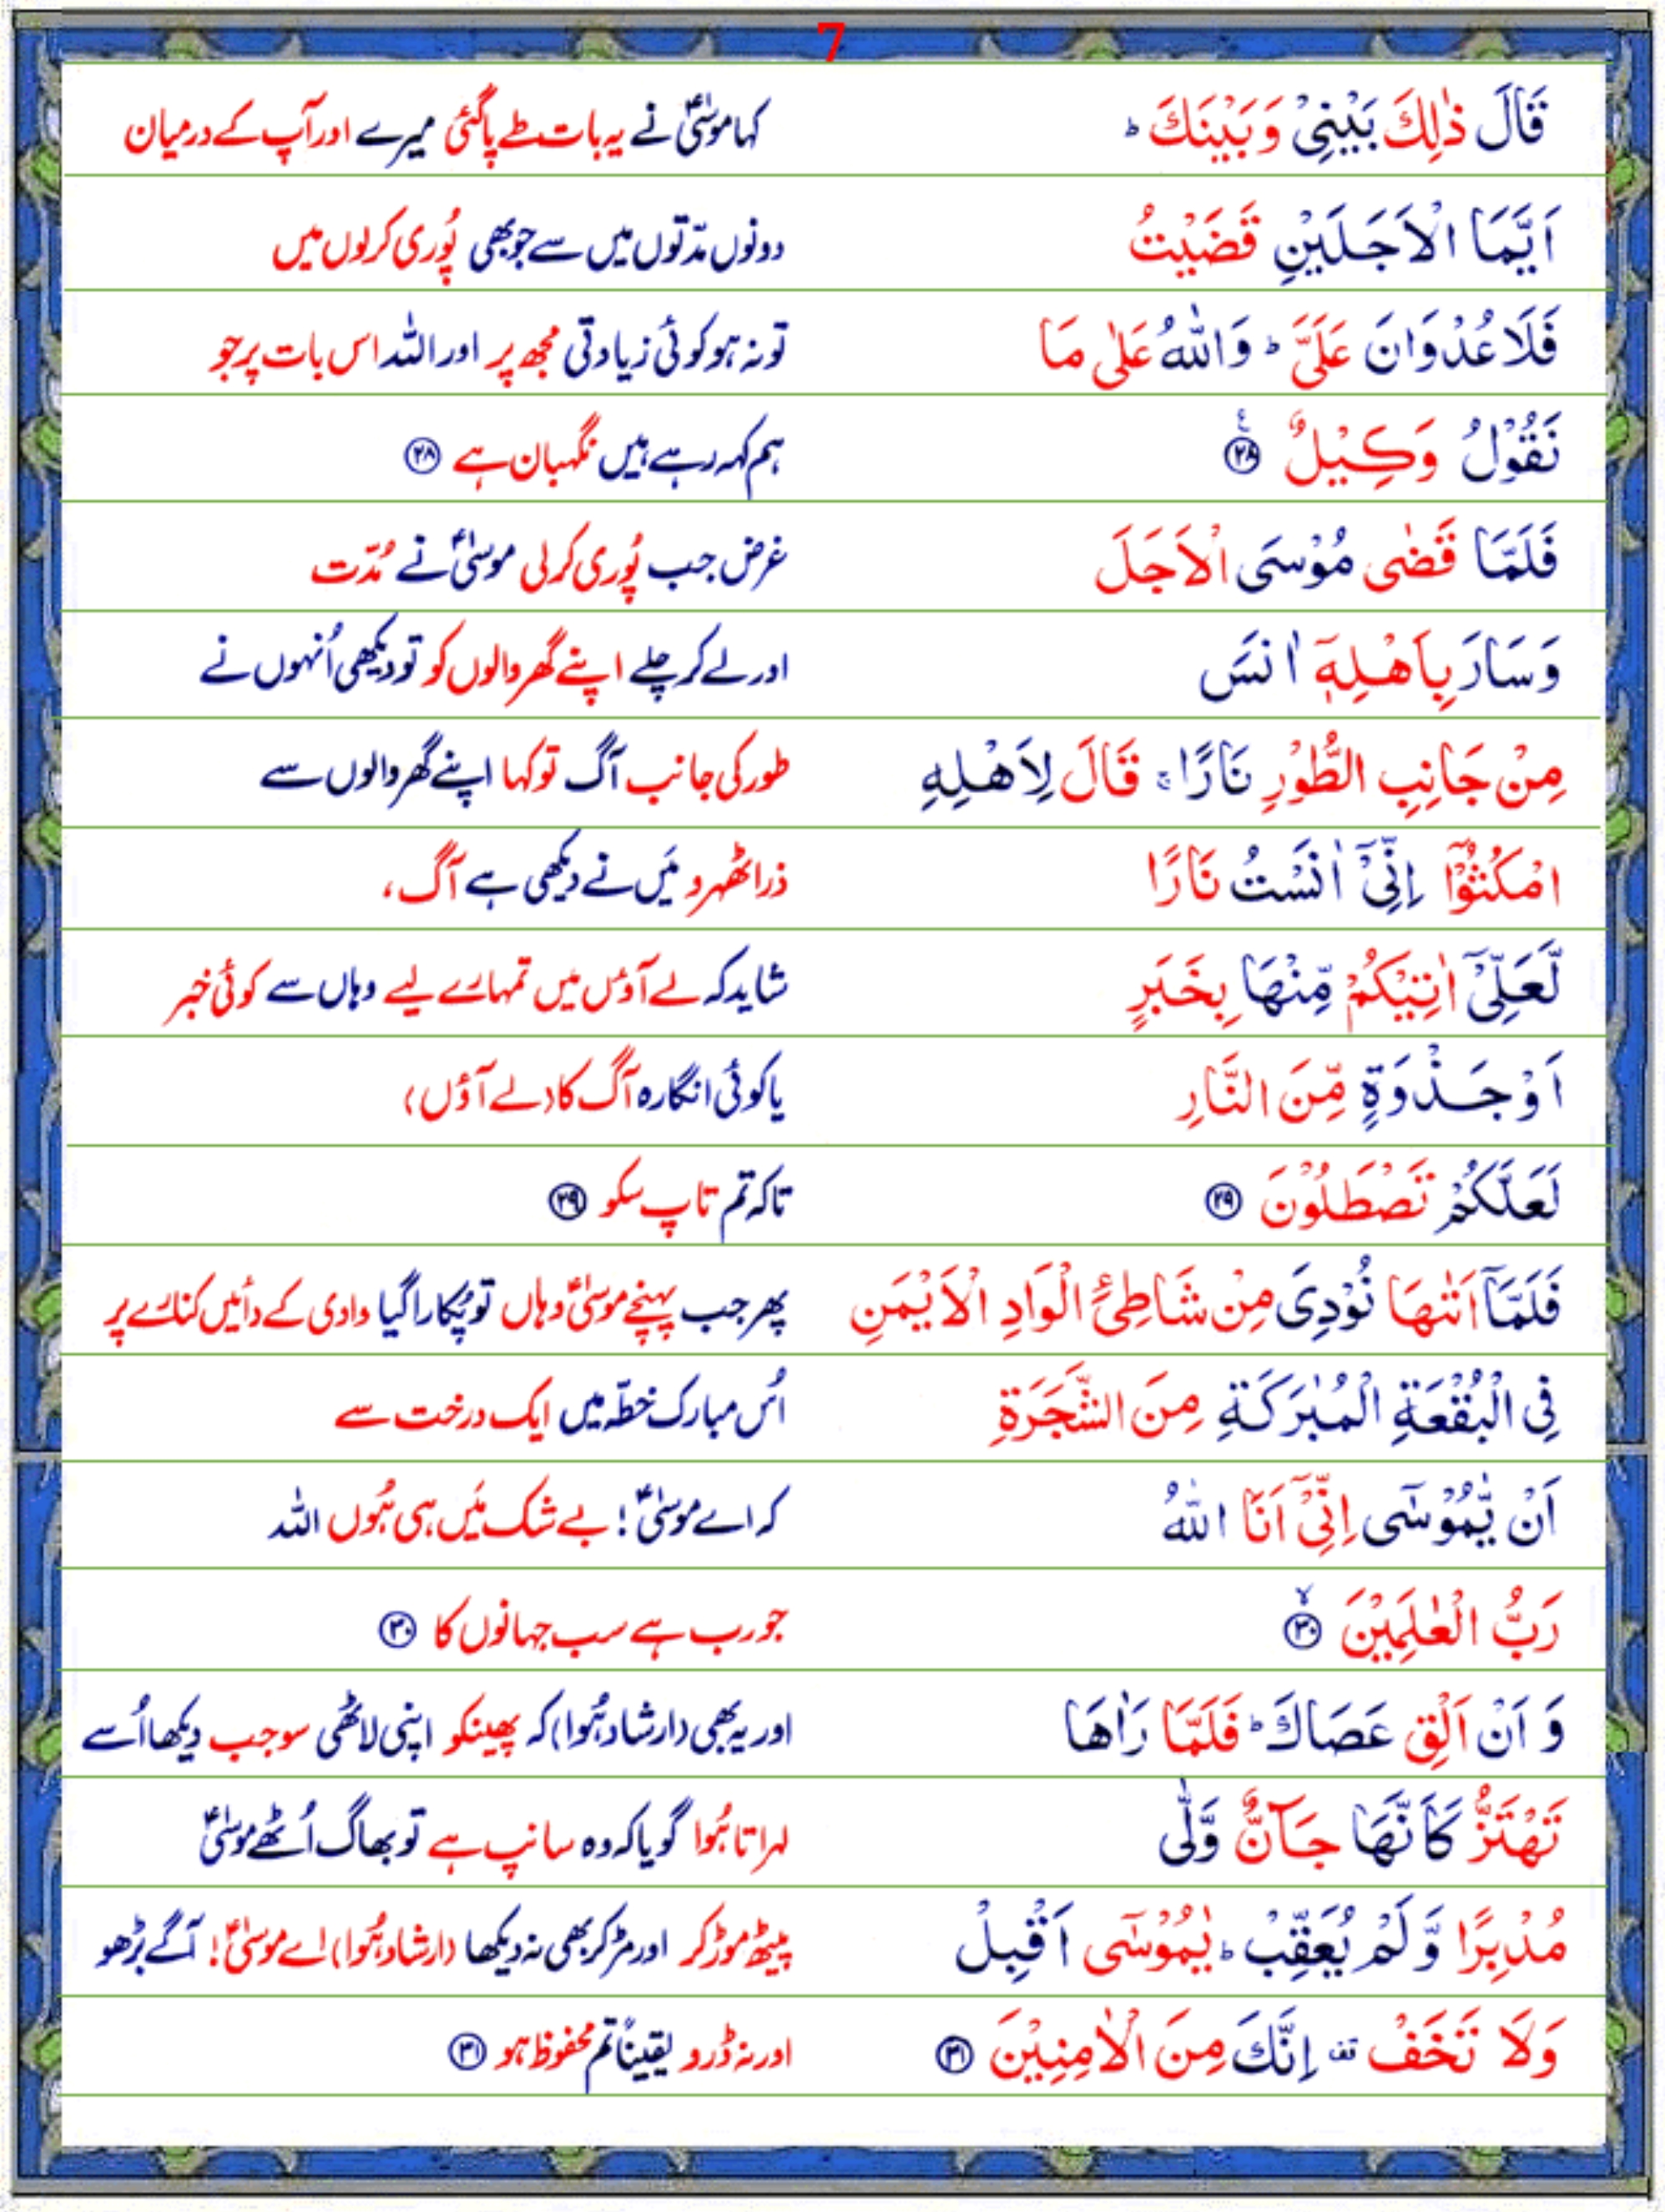 7
قَالَ ذٰلِكَ بَيْنِىْ وَبَيْنَكَ ؕ کہا موسٰیؑ نے یہ بات طے پاگئی میرے اور آپ کے درمیان
اَيَّمَا الْاَجَلَيْنِ قَضَيْتُ دونوں مدّتوں میں سے جو بھی پُوری کرلوں میں
فَلَا عُدْوَانَ عَلَىَّ ؕ وَاللّٰهُ عَلٰى مَا تو نہ ہو کوئی زیادتی مجھ پر اور اللہ اس بات پر جو
نَقُوْلُ وَكِيْلٌ ۟ ﴿۲۸﴾ ہم کہہ رہے ہیں نگہبان ہے ﴿۲۸﴾
فَلَمَّا قَضٰى مُوْسَى الْاَجَلَ غرض جب پُوری کرلی موسٰیؑ نے مُدّت
وَسَارَ بِاَهْلِهٖۤ اٰنَسَ اور لے کر چلے اپنے گھر والوں کو تو دیکھی اُنہوں نے
مِنْ جَانِبِ الطُّوْرِ نَارًا ۚ قَالَ لِاَهْلِهِ طور کی جانب آگ تو کہا اپنے گھر والوں سے
امْكُثُوْۤا اِنِّىْۤ اٰنَسْتُ نَارًا ذرا ٹھہرو مَیں نے دیکھی ہے آگ،
لَّعَلِّىْۤ اٰتِيْكُمْ مِّنْهَا بِخَبَرٍ شاید کہ لے آؤں میں تمہارے لیے وہاں سے کوئی خبر
اَوْ جَذْوَةٍ مِّنَ النَّارِ یا کوئی انگارہ آگ کا (لے آؤں)
لَعَلَّكُمْ تَصْطَلُوْنَ ﴿۲۹﴾ تاکہ تم تاپ سکو ﴿۲۹﴾
فَلَمَّاۤ اَتٰٮهَا نُوْدِىَ مِنْ شَاطِئِ الْوَادِ الْاَيْمَنِ پھر جب پہنچے موسٰیؑ وہاں تو پُکارا گیا وادی کے دائیں کنارے پر
فِى الْبُقْعَةِ الْمُبٰرَكَةِ مِنَ الشَّجَرَةِ اُس مبارک خطّہ میں ایک درخت سے
اَنْ يّٰمُوْسٰٓى اِنِّىْۤ اَنَا اللّٰهُ کہ اے موسٰیؑ! بے شک مَیں ہی ہُوں اللہ
رَبُّ الْعٰلَمِيْنَ ۙ ﴿۳۰﴾ جو رب ہے سب جہانوں کا ﴿۳۰﴾
وَ اَنْ اَلْقِ عَصَاكَ ؕ فَلَمَّا رَاٰهَا اور یہ بھی (ارشاد ہُوا) کہ پھینکو اپنی لاٹھی سو جب دیکھا اُسے
تَهْتَزُّ كَاَنَّهَا جَآنٌّ وَّلّٰى لہراتا ہُوا گویا کہ وہ سانپ ہے تو بھاگ اُٹھے موسٰیؑ
مُدْبِرًا وَّلَمْ يُعَقِّبْ ؕ يٰمُوْسٰٓى اَقْبِلْ پیٹھ موڑ کر اور مڑ کر بھی نہ دیکھا (ارشاد ہُوا) اے موسٰیؑ! آگے بڑھو
وَلَا تَخَفْ قف اِنَّكَ مِنَ الْاٰمِنِيْنَ ﴿۳۱﴾ اور نہ ڈرو یقینًا تم محفوظ ہو ﴿۳۱﴾